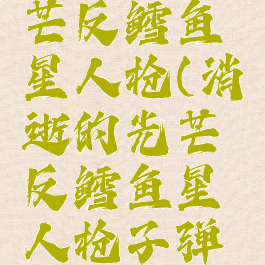 芒反鳕鱼
星人枪(消
逝的光芒
反鳕鱼星
人枪子弹